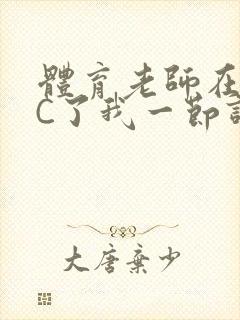 體育老師在
C了我一節
大唐棄少